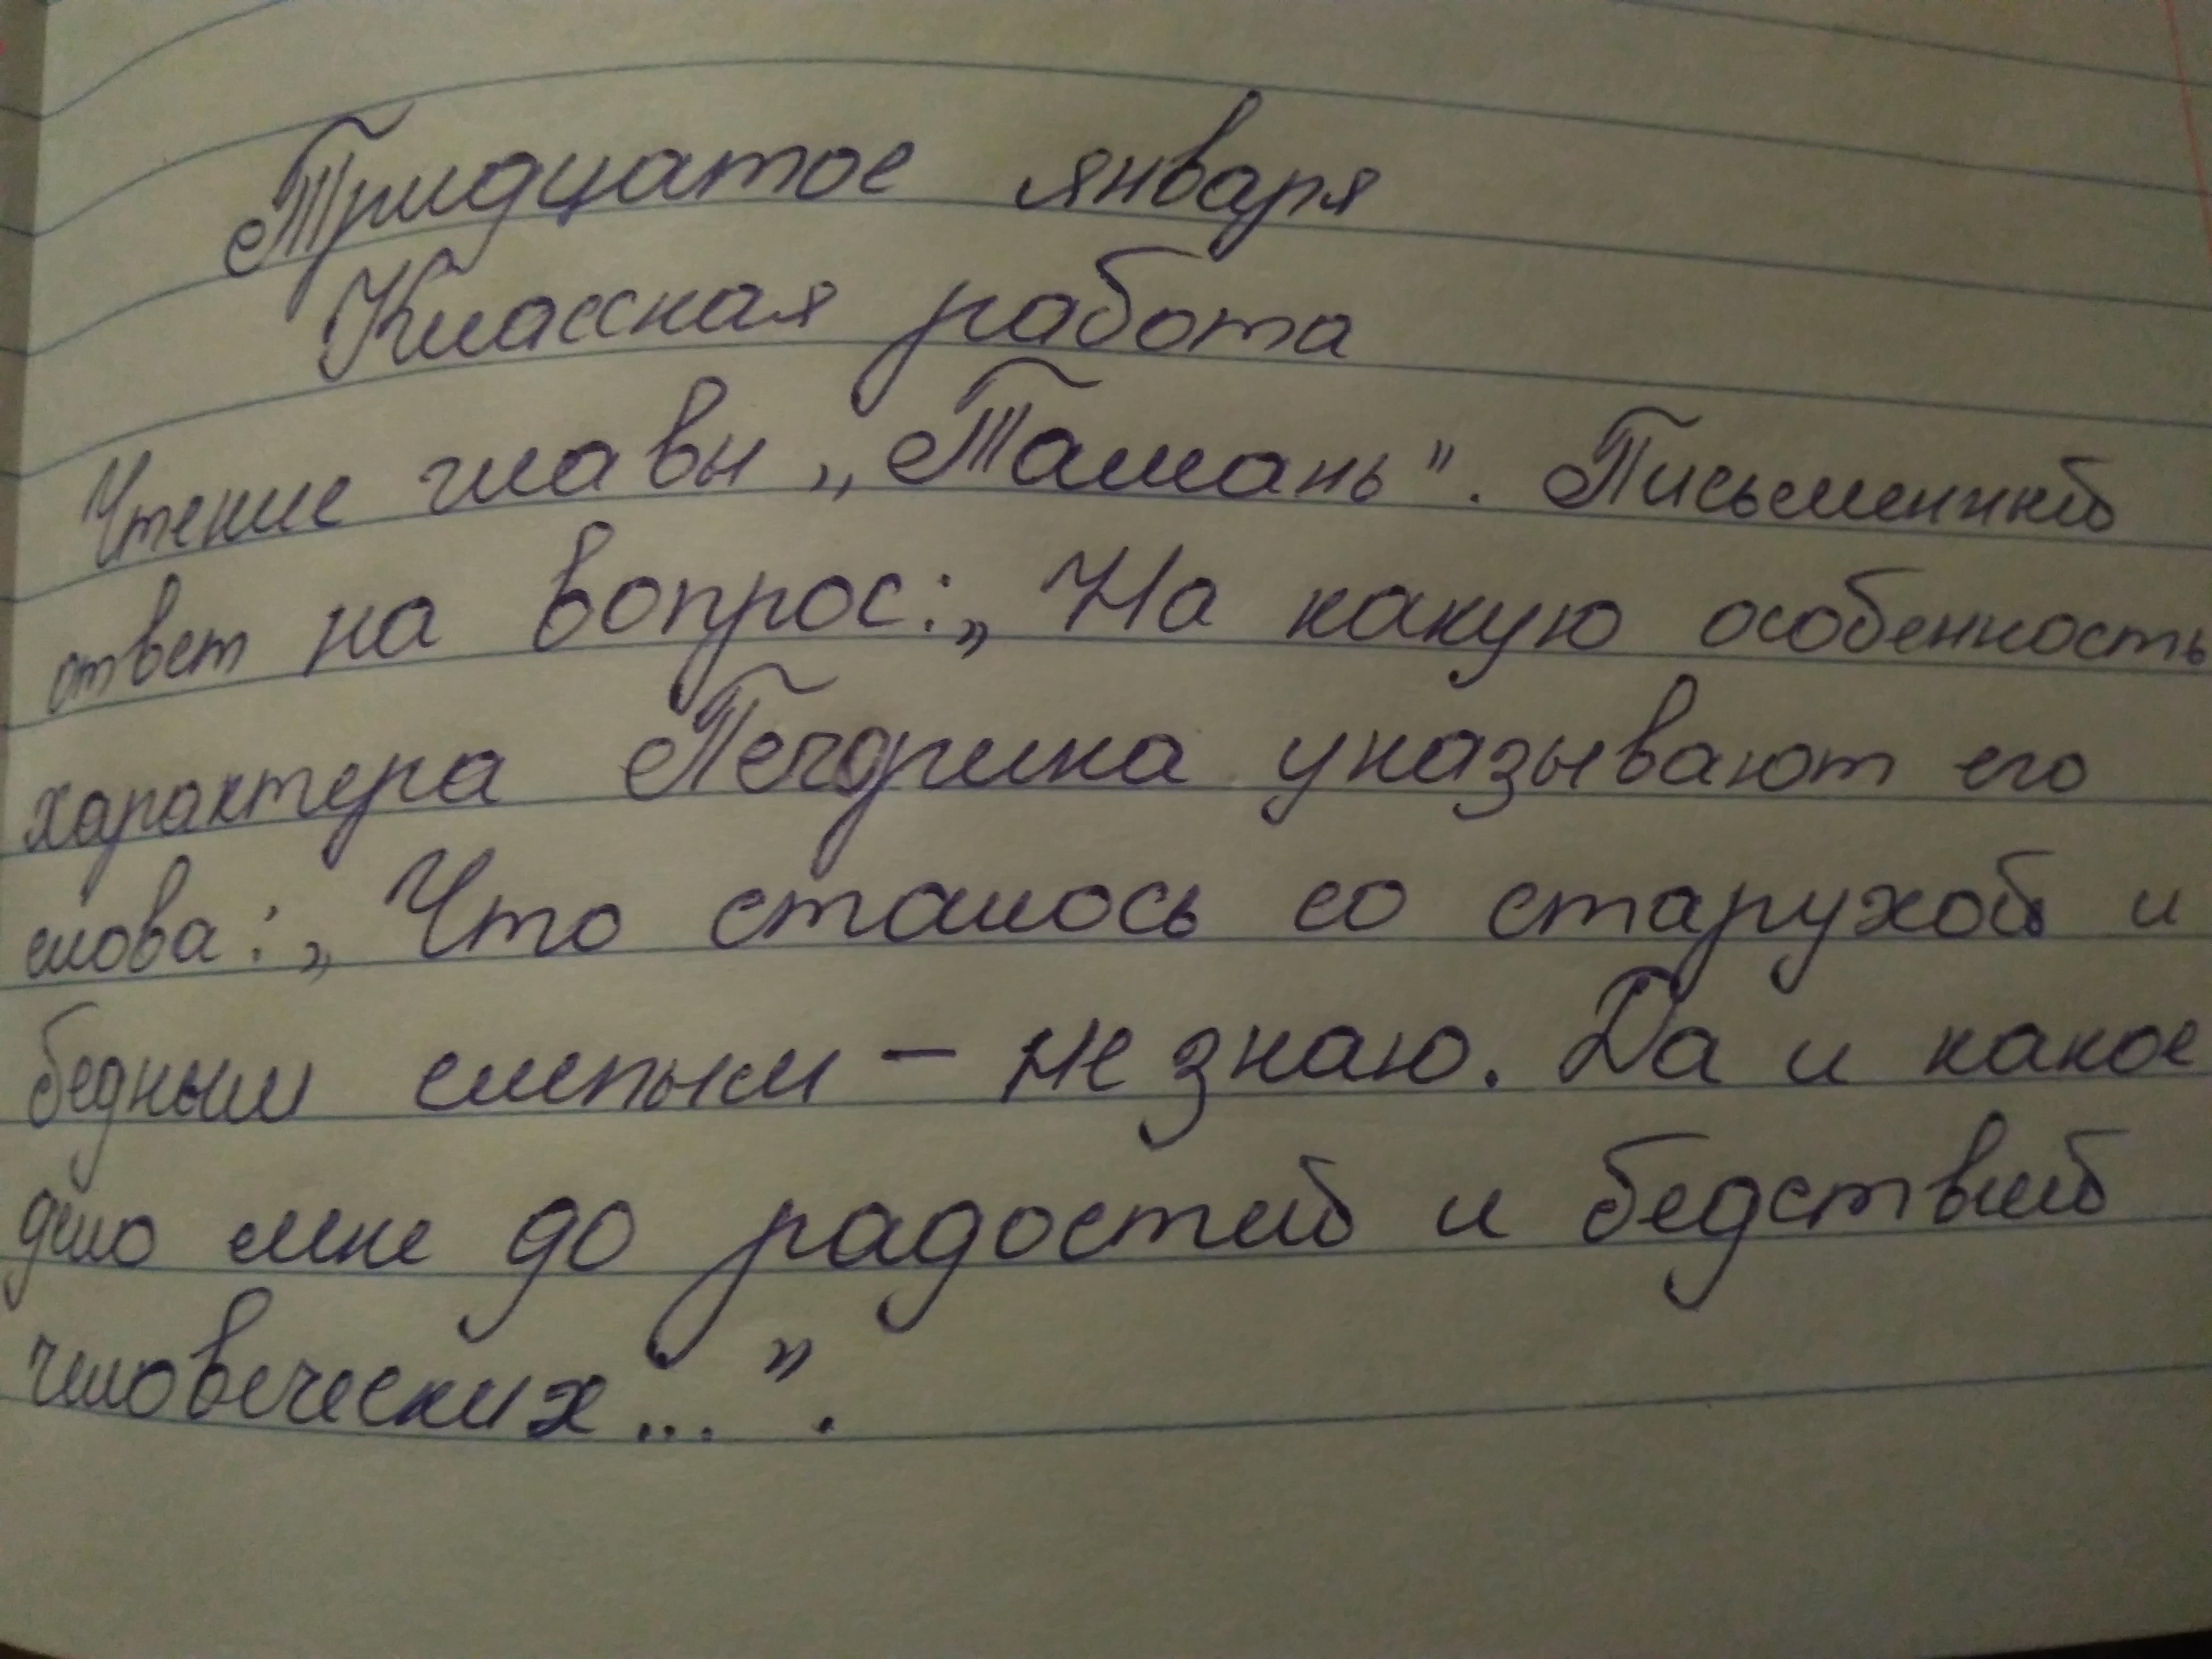 Тридцатое января
Классная работа
Чтение главы „Тамань". Письменный
ответ на вопрос: „На какую особенность
характера Печорина указывают его
слова: „Что сталось со старухой и
бедным слепым – не знаю. Да и какое
дело мне до радостий и бедствий
человеческих...".